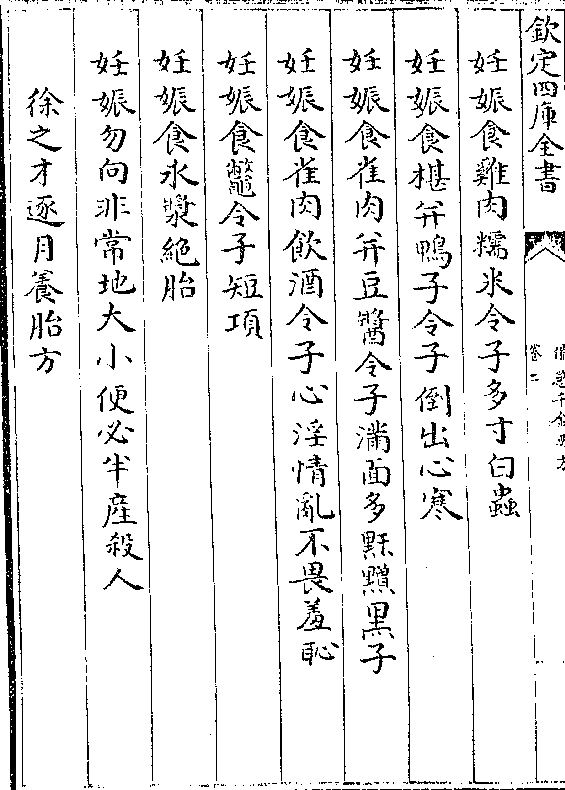 欽定四庫全書
備急千金要方
卷二
妊娠食雞肉糯米令子多寸白蟲
妊娠食椹并鴨子令子倒出心寒
妊娠食雀肉并豆醬令子滿面多䵟黵黑子
妊娠食雀肉飲酒令子心淫情亂不畏羞恥
妊娠食鼈令子短項
妊娠食氷漿絶胎
妊娠勿向非常地大小便必半產殺人
徐之才逐月養胎方